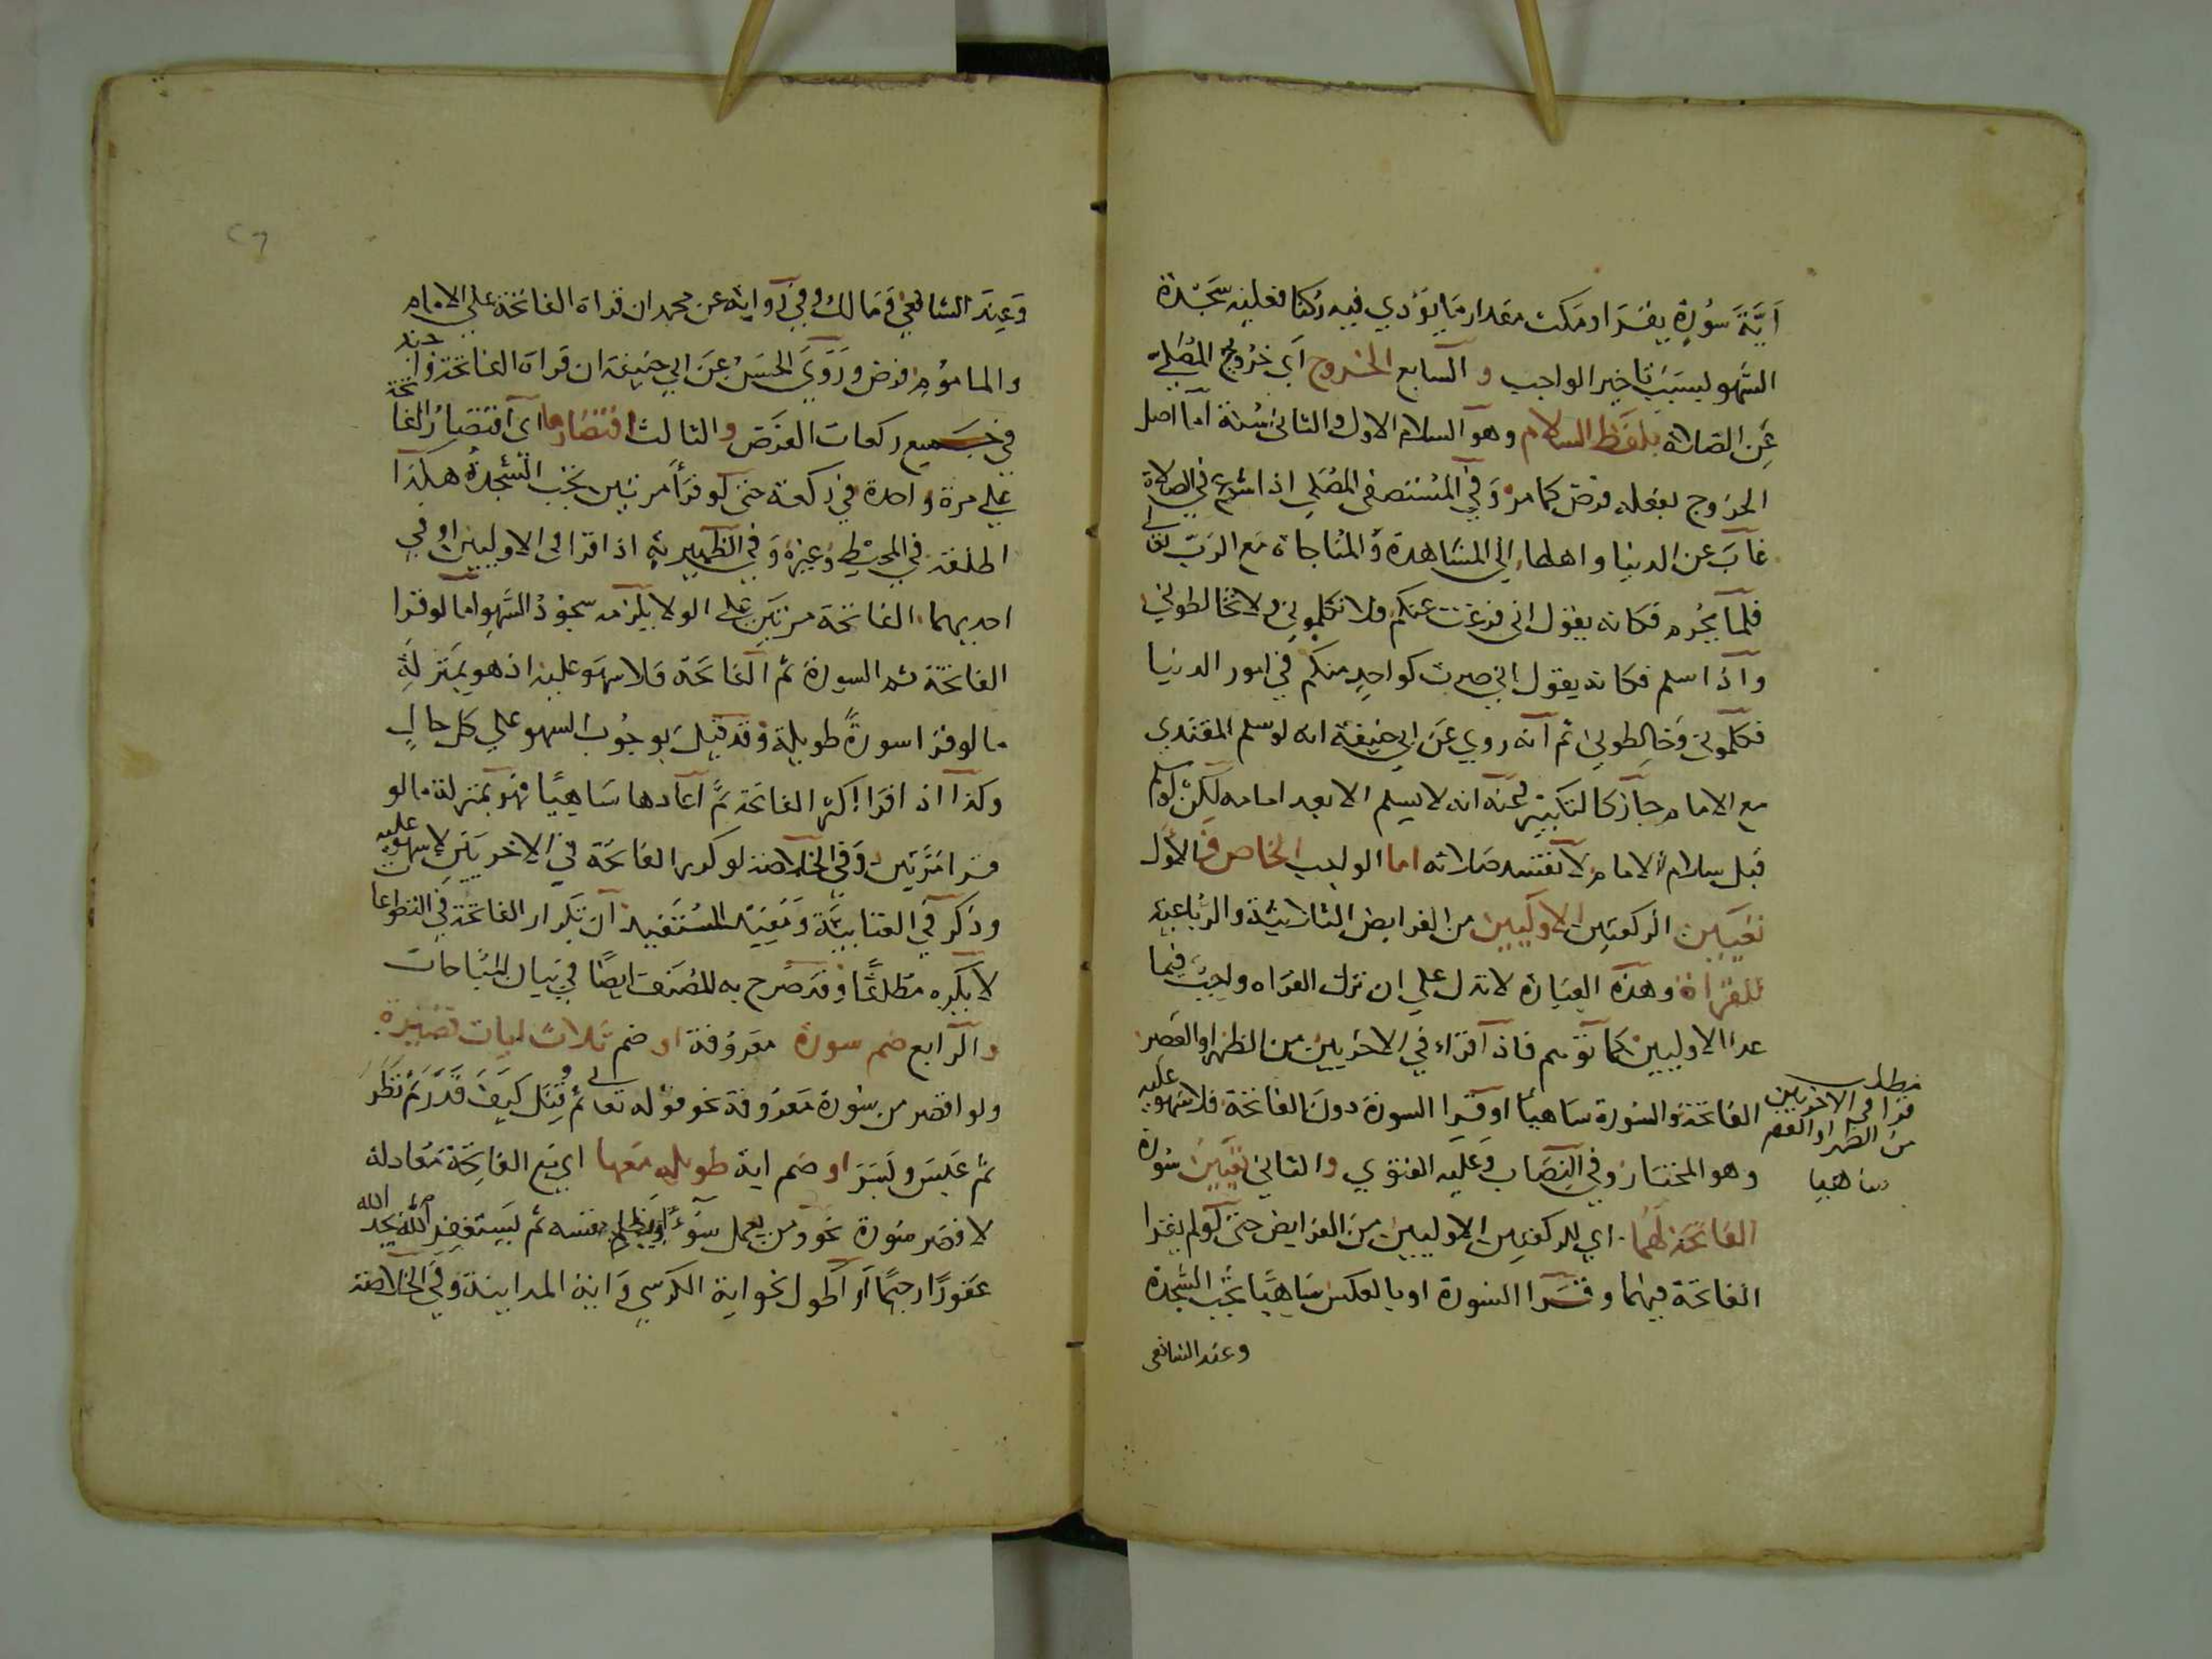 اَيَّةَ سُورَةٍ يقرا ومكث مقدار مَا يؤدي فيه ركنا فعليه سَجْدة
السَّهو لسبب تاخير الواجب و السابع الخروج اَي خرُوج المُصَلي
عَن الصَلاة بلفظ السلام وهو السلام الاول والثاني سُنة اما اصل
الخروج بفعله فرض كما مر وَفي المُستصفى المصَلي اذا شرع في الصلاة
غابَ عن الدنيا و اهلها الي المشاهدة والمنَاجاة مَع الرَبّ تعالى
فلما يحُرم فكانه يقول اني فرغت عنكم فلا تكلموني ولا تخالطوني
وَاذا سلم فكانه يقول اني صرت كواحدٍ منكم في امور الدنيا
فكلموني وَخالِطوني ثم انه روي عَن ابي حنيفة انه لو سلم المقتدي
مع الامام جاز كالتكبير وَعنه انه لا يسلم الا بعد امامه لكن لو سلم
قبل سلام الامام لا تفسد صَلاته اما الواجب الخاص فالاول
تعيين الركعتين الاوليين من الفرايض الثلاثية والرُّباعية
للقراة وهذه العبَارة لا تدل علي ان ترك القراه واجب فيما
عدا الاوليين كما توهم فاذا قراء في الاخريين من الظهر او العَصر
الفاتحة والسُورة ساهيا او قرا السورة دون الفاتحة فلا سهو عليه
وهو المختار وفي النصَاب وَعَليه الفتوي والثاني تعيين سُورة
الفاتحة لهُمَا اي للركعتين الاوليين من الفرايض حتى لو لم يقرا
الفاتحة فيهما وقرا السورة او بالعكس سَاهيًا تجب السَّجدة
وعند الشافعي
مطلب
قرا في الاخريين
من الظهر او العصر
ساهيا
وَعِند الشافعي وَمَالك وفي رواية عن محمد ان قراة الفاتحة علي الامام
والماموم فرض ورَوَي الحَسَنُ عَن ابي حَنيفة ان قراة الفاتحة واجبة
في جميع ركعات الفرَض والثالث اقتصَارها اي اقتصَارُ الفاتحة
علي مرة واحدة في ركعة حتى لو قرأ مرتين تجب السَّجدةُ هكذا
اطلقه في المحيْط وَغيرهُ وَفي الظهيرية اذا قرا في الاوليين او في
احديهما الفاتحة مرتين علي الولا يلزمه سجودُ السَّهو اما لو قرا
الفاتحة ثم السورة ثم الفاتحَة فلا سَهو عليه اذ هو بمنزلةِ
ما لو قرا سورةً طويلة وَقد قيل بوجُوب السهو علي كل حالٍ
وكذا اذا قرا اكثر الفاتحة ثمَّ اعَادها سَاهيًا فهو بمنزلة ما لو
قرا مَرَّتين وَفي الخلاصة لو كرر الفاتحَة في الاخريَين لا سهو عليه
وذكر في العتابيَّة وَمُغيَة المستفيد ان تكرار الفاتحة في التطوعات
لا يكره مطلقًا وقد صَرح به المصَنف ايضًا في بيان المبَاحَات
والرابع ضم سورة معرُوفة او ضم ثلاث ايات قصيرة
ولو اقصر من سُورة مَعرُوفة نحو قوله تعالى ثم قُتل كيَفَ قَدَّرَ ثم نَظَرَ
ثم عَبَسَ وبَسَرَ او ضم اية طويله مَعها اي مَع الفاتِحَة مُعَادلة
لاقصر سُورة نحو ومن يعمل سُوٓءًا او يظلم نفسه ثم يستَغفِر الله يجد الله
غفورًا رحيمًا او اطول نحو اية الكرسي وَاية المداينة وَفي الخلاصة